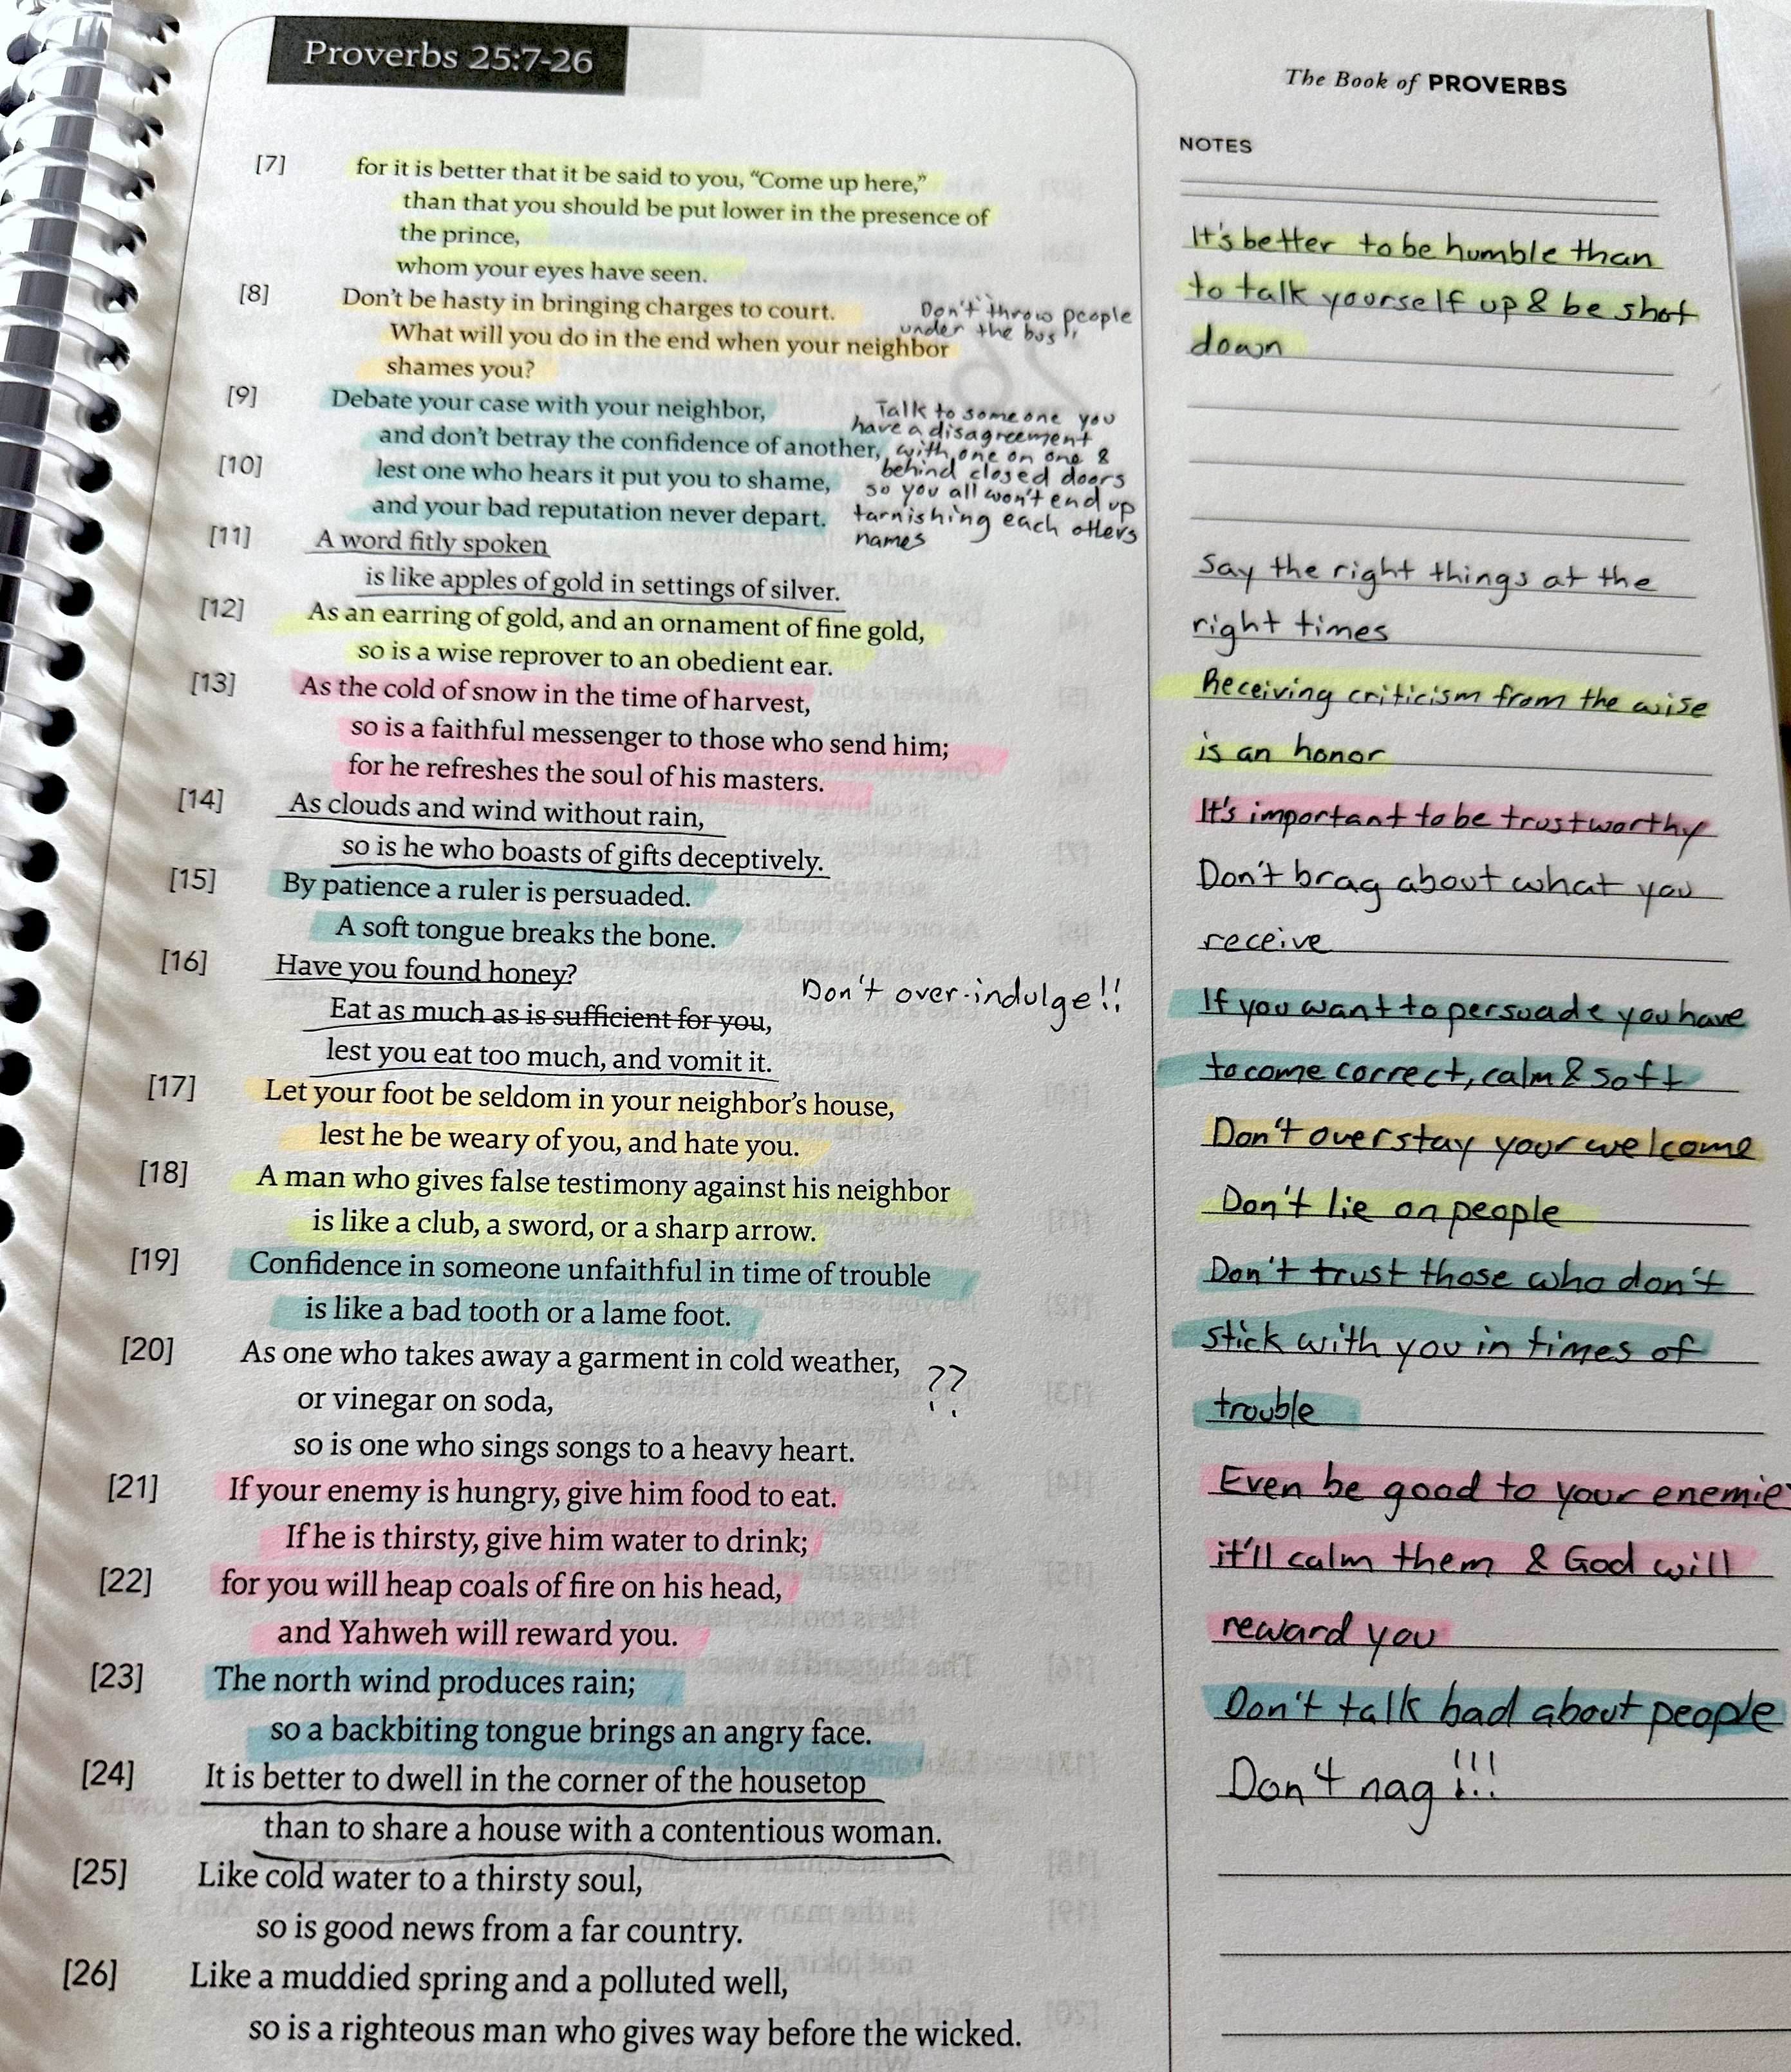 Proverbs 25:7-26
The Book of PROVERBS
NOTES
[7] for it is better that it be said to you, “Come up here,”
than that you should be put lower in the presence of
the prince,
whom your eyes have seen.
[8] Don’t be hasty in bringing charges to court.
What will you do in the end when your neighbor
shames you?
"Don't throw people
under the bus"
[9] Debate your case with your neighbor,
and don’t betray the confidence of another,
[10] lest one who hears it put you to shame,
and your bad reputation never depart.
Talk to someone you
have a disagreement
with, one on one &
behind closed doors
so you all won't end up
tarnishing each others
names
[11] A word fitly spoken
is like apples of gold in settings of silver.
[12] As an earring of gold, and an ornament of fine gold,
so is a wise reprover to an obedient ear.
[13] As the cold of snow in the time of harvest,
so is a faithful messenger to those who send him;
for he refreshes the soul of his masters.
[14] As clouds and wind without rain,
so is he who boasts of gifts deceptively.
[15] By patience a ruler is persuaded.
A soft tongue breaks the bone.
[16] Have you found honey?
Eat as much as is sufficient for you,
lest you eat too much, and vomit it.
Don't over-indulge!!
[17] Let your foot be seldom in your neighbor’s house,
lest he be weary of you, and hate you.
[18] A man who gives false testimony against his neighbor
is like a club, a sword, or a sharp arrow.
[19] Confidence in someone unfaithful in time of trouble
is like a bad tooth or a lame foot.
[20] As one who takes away a garment in cold weather,
or vinegar on soda,
so is one who sings songs to a heavy heart.
??
[21] If your enemy is hungry, give him food to eat.
If he is thirsty, give him water to drink;
[22] for you will heap coals of fire on his head,
and Yahweh will reward you.
[23] The north wind produces rain;
so a backbiting tongue brings an angry face.
[24] It is better to dwell in the corner of the housetop
than to share a house with a contentious woman.
[25] Like cold water to a thirsty soul,
so is good news from a far country.
[26] Like a muddied spring and a polluted well,
so is a righteous man who gives way before the wicked.
It's better to be humble than
to talk yourself up & be shot
down
Say the right things at the
right times
Receiving criticism from the wise
is an honor
It's important to be trustworthy
Don't brag about what you
receive
If you want to persuade you have
to come correct, calm & soft
Don't overstay your welcome
Don't lie on people
Don't trust those who don't
stick with you in times of
trouble
Even be good to your enemie
it'll calm them & God will
reward you
Don't talk bad about people
Don't nag!!!